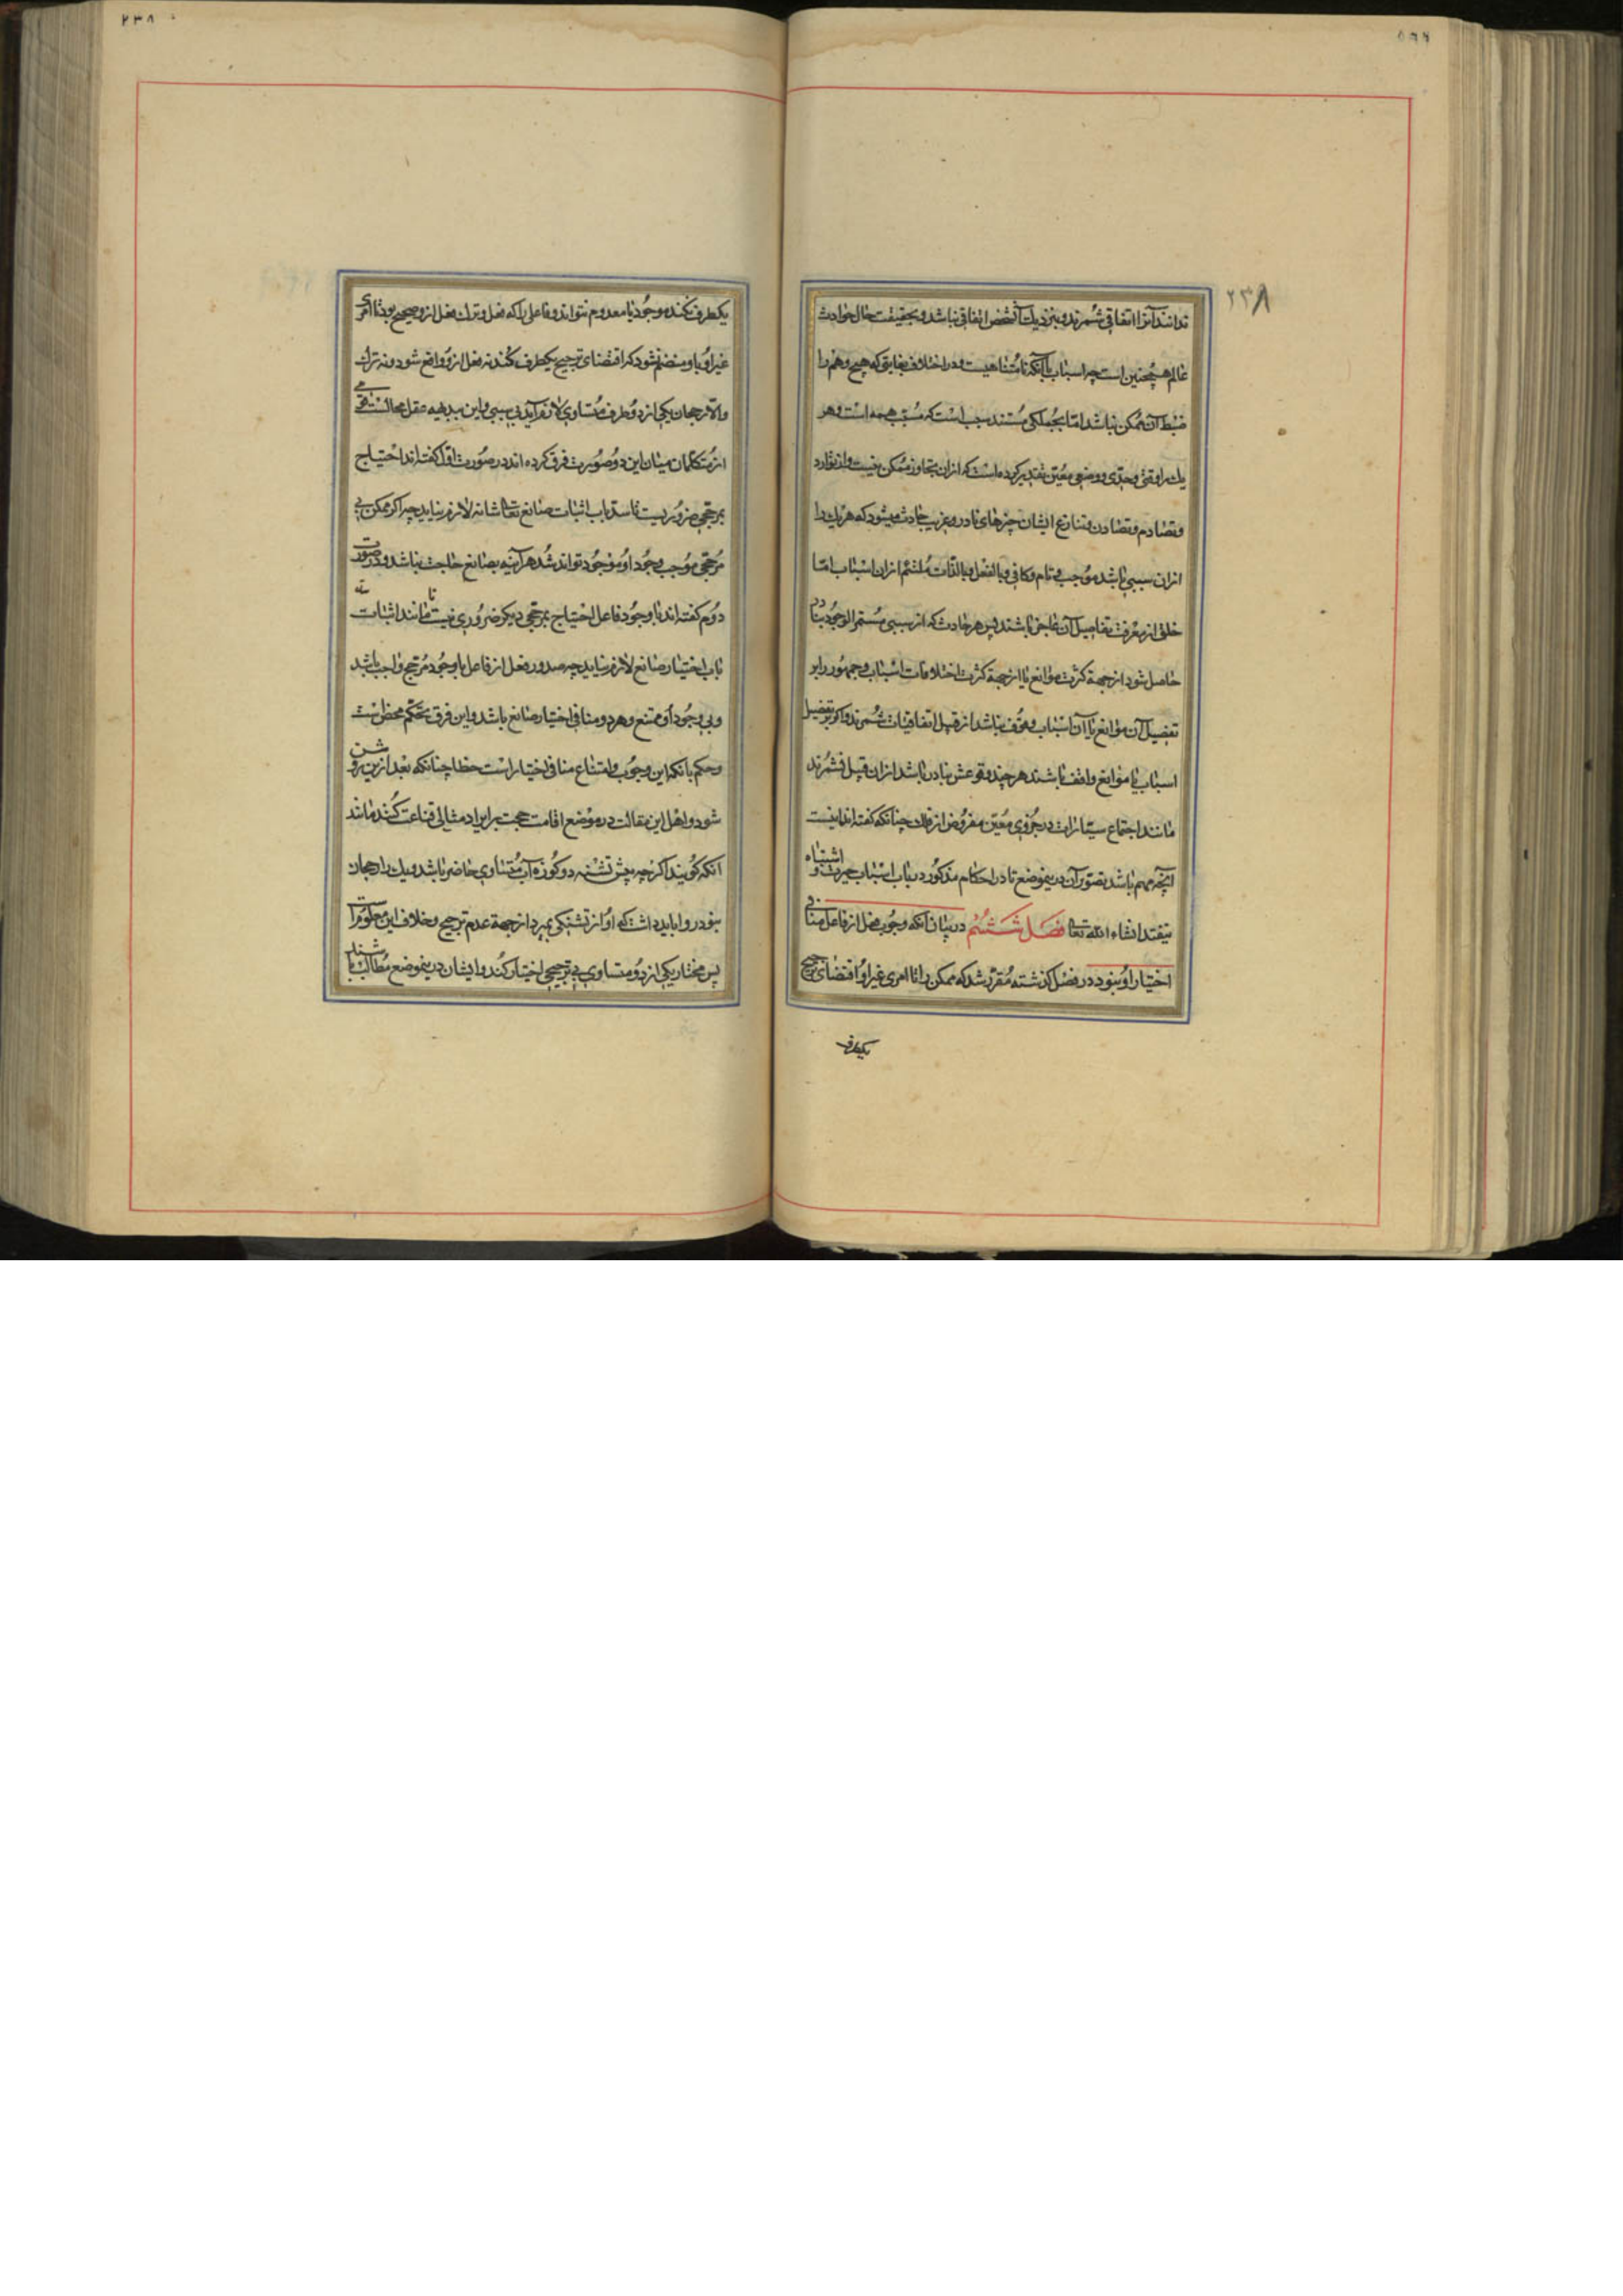 ۲۳۸
ندانند آنرا اتفاقی شمرند و بنزدیك آنشخص اتفاقی نباشد و بحقیقت حال حوادث
عالم همچنین است چه اسباب با آنکه نامتناهیست و در اختلاف بغایتی که هیچ وهم را
ضبط آن ممکن نباشد اما بجملگی مستند بسبب است که مسبب همه است و هر
یك را وقتی و حدی و وضعی معین تقدیر کرده است که ازان تجاوز ممکن نیست و از توارد
و تصادم و تصادف و تنازع ایشان چیزهای نادر و غریب حادث میشود که هر یك را
ازان سببی باشد موجب و تام و کافی و بالفعل و بالذات ملتئم ازان اسباب اما
خلق از معرفت تفاصیل آن عاجز باشند پس هر حادث که از سببی مستمر الوجود بنادر
حاصل شود از جهة کثرت موانع یا از جهة کثرت اختلافات اسباب و جمهور را بر
تفصیل آن موانع یا آن اسباب وقوف نباشد از قبیل اتفاقیات شمرند و اگر بر تفصیل
اسباب یا موانع واقف باشند هر چند وقوعش نادر باشد ازان قبیل نشمرند
مانند اجتماع سیارات در جزوی معین مفروض از فلك چنانکه گفته اند اینست
آنچه مهم باشد بتصور آن درینموضع تا در احکام مذکور در باب اسباب حیرت و اشتباه
نیفتد انشاء الله تعالی فصل ششم در بیان آنکه وجوب فعل از فاعل منافی
اختیار او نبود در فصل گذشته مقرر شد که ممکن را تا امری غیر او اقتضای ترجیح
یکطرف
۲۳۸
یکطرف نکند موجود یا معدوم نتواند و فاعلی را که فعل و ترك فعل ازو صحیح بود تا امری
غیر او باو منضم نشود که اقتضای ترجیح یکطرف کند نه فعل ازو واقع شود و نه ترك
والا رجحان یکی از دو طرف متساوی لازم آید بی سببی و این ببدیهه عقل محالست
از متکلمان میان این دو صورت فرق کرده اند در صورت اول گفته اند احتیاج
بمرجحی ضروریست تا سد باب اثبات صانع تعالی شانه لازم نیاید چه اگر ممکن بی
مرجحی موجب وجود او موجود تواند شد هر آینه بصانع حاجت نباشد و در صورت
دوم گفته اند با وجود فاعل احتیاج بمرجحی دیگر ضروری نیست تا مانند اثبات
باب اختیار صانع لازم نیاید چه صدور فعل از فاعل با وجود مرجح واجب باشد
و بی وجود او ممتنع و هر دو منافی اختیار صانع باشد و این فرق تحکم محض است
و حکم بانکه این وجوب و امتناع منافی اختیار است خطا چنانکه بعد ازین روشن
شود و اهل این مقالت در موضع اقامت حجت بر ایراد مثالی قناعت کنند مانند
آنکه گویند اگر چه پیش تشنه دو کوزه آب متساوی حاضر باشد و یك را رجحان
نبود روا باید داشت که او از تشنگی بمیرد از جهة عدم ترجیح و خلاف این معلومست
پس مختار یکی از دو متساوی بی ترجیحی اختیار کند و ایشان درینموضع مطالب باشند